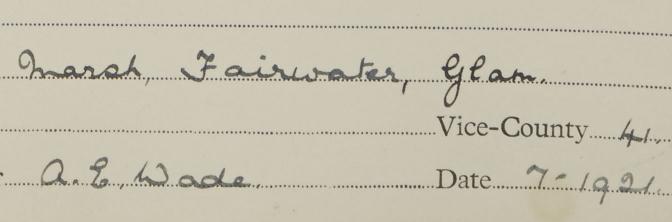 Marsh, Fairwater, Glam.
Vice-County 41.
A. E. Wade. Date 7-1921.